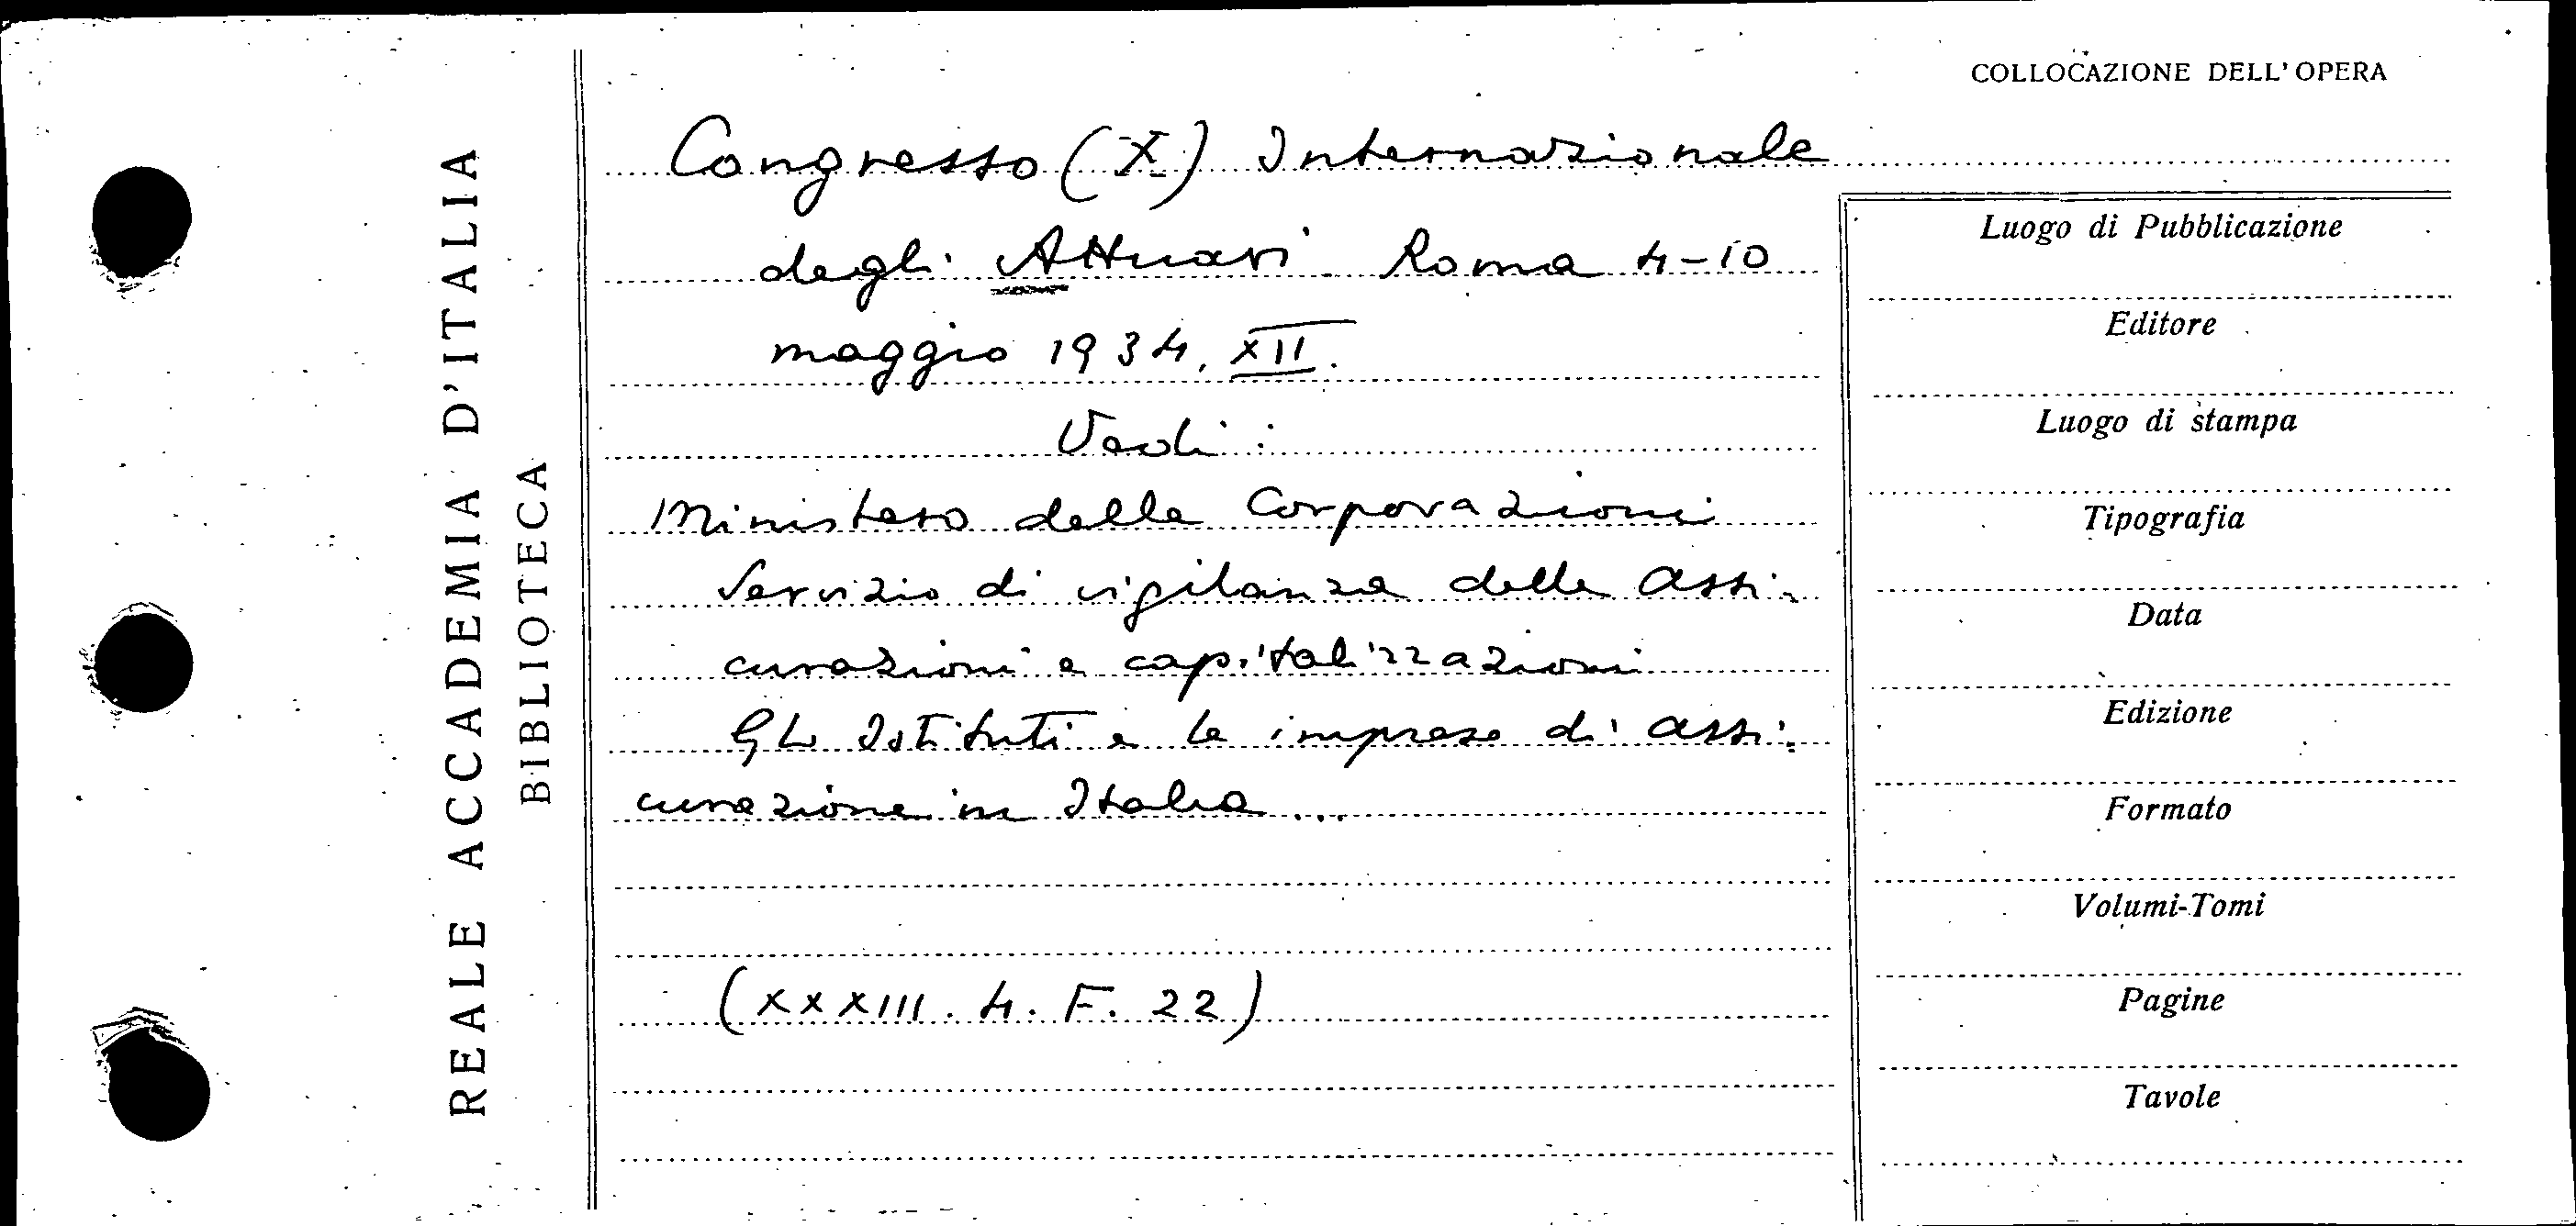 REALE ACCADEMIA D'ITALIA
BIBLIOTECA
COLLOCAZIONE DELL'OPERA
Congresso (X) Internazionale
degli Attuari Roma 4-10
maggio 1934, XII.
Vedi:
Ministero delle Corporazioni
Servizio di vigilanza delle assi-
curazioni e capitalizzazioni
Gli Istituti e le imprese di assi-
curazione in Italia...
(XXXIII. 4. F. 22)
Luogo di Pubblicazione
Editore
Luogo di stampa
Tipografia
Data
Edizione
Formato
Volumi-Tomi
Pagine
Tavole